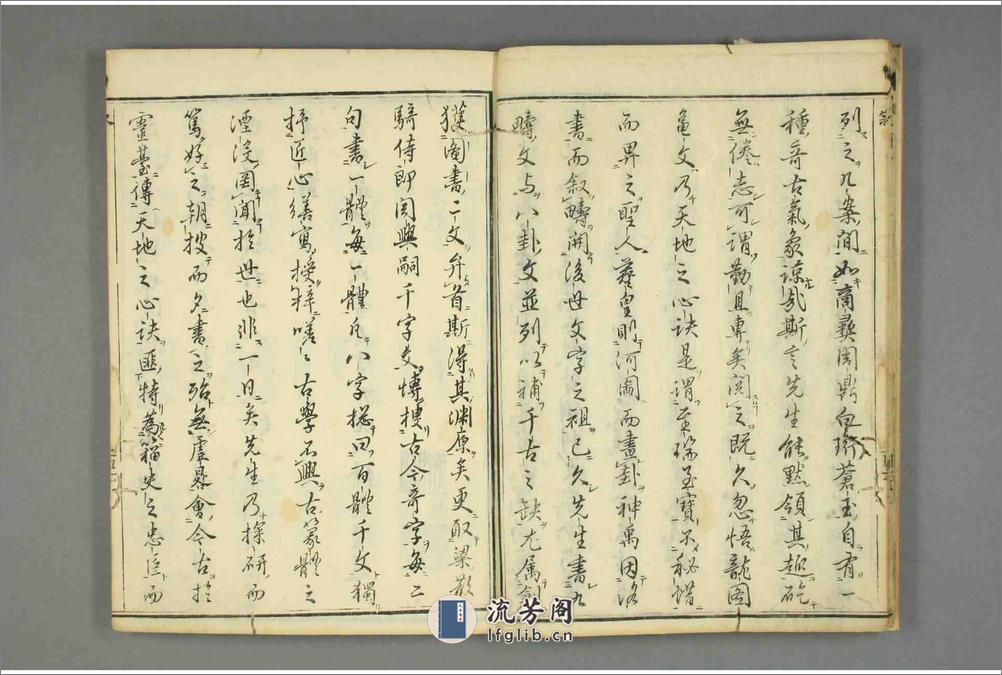 列之几案間如商彝周鼎白珩蒼玉自有一
種奇古氣象諒哉斯言先生能黙領其趣矻
無倦志可謂勤且專矣閲之既久忽悟龍圖
龜文乃天地之心訣是謂至瑞至寶不秘惜
而畀之聖人羲皇則河圖而畫卦神禹因洛
書而叙疇開後世文字之祖已久先生書九
疇文与八卦文並列以補千古之缺尤属
獲圖書二文弁首斯得其淵原矣更取梁散
騎侍郎周興嗣千字文博捜古今奇字每二
句書一體每一體凡八字揔曰百體千文獨
抒匠心繕寫授梓嗟々古學不興古篆體之
湮没罔聞於世也非一日矣先生乃探研而
篤好之朝捜而夕書之殆無虚晷會今古於
靈臺傳天地之心訣匪特為籀史之忠臣而
流芳阁
lfglib.cn